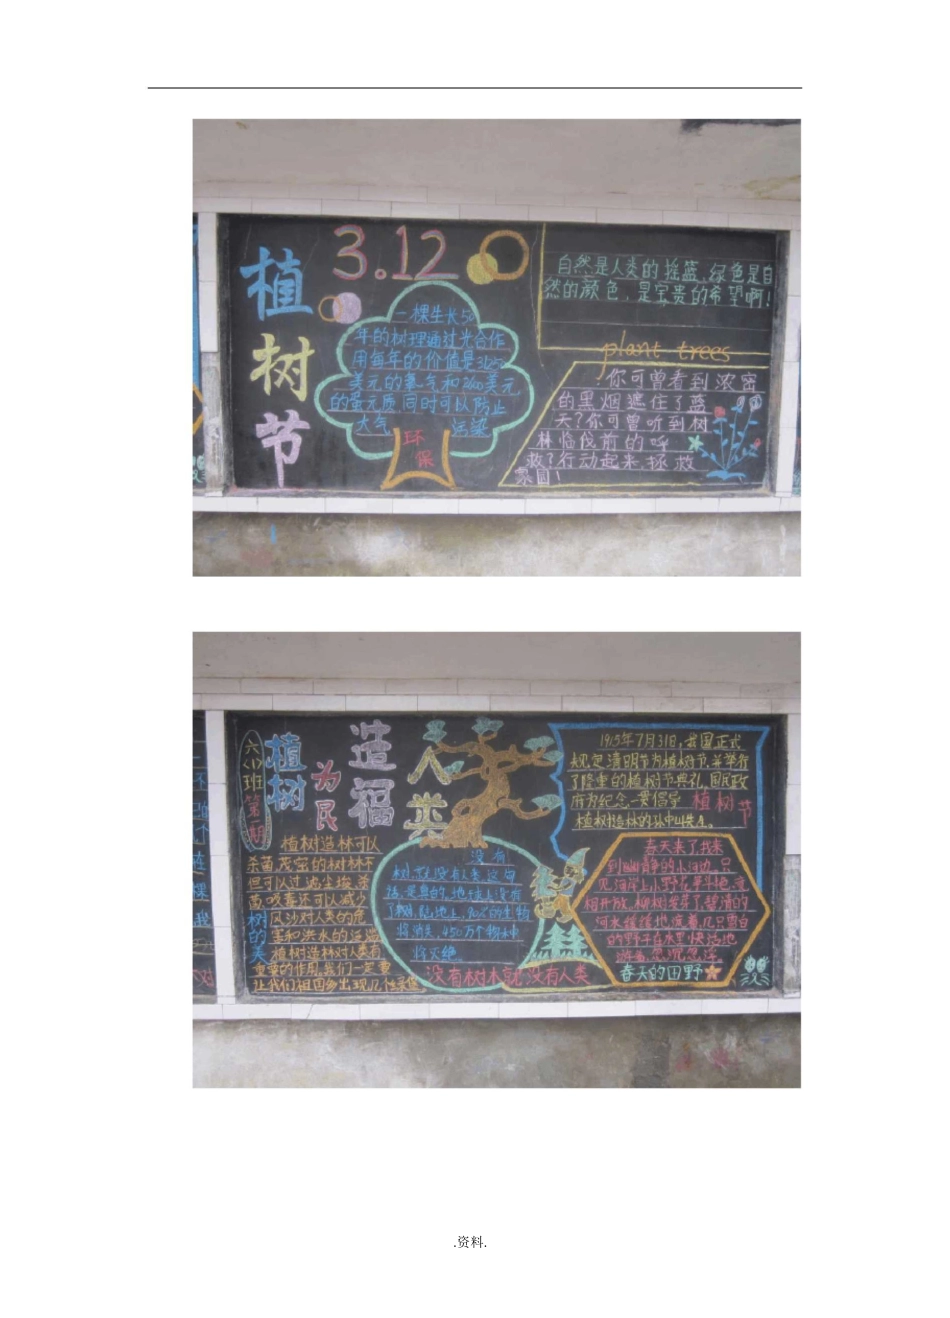 植树节
3.12
一棵生长50
年的树理通过光合作
用每年的价值是3125
美元的氧气和2500美元
的蛋元质,同时可以防止
大气 污染
环
保
自然是人类的摇篮,绿色是自
然的颜色,是宝贵的希望啊!
plant trees
你可曾看到浓密
的黑烟遮住了蓝
天?你可曾听到树
林临伐前的呼
救?行动起来,拯救
家园!
六(1)班
植树
为民
造福
人类
植树造林可以
杀菌,茂密的树林不
但可以过滤尘埃,杀
菌,吸毒还可以减少
风沙对人类的危
害和洪水的泛滥
植树造林对人类有
重要的作用,我们一定要
让我们祖国多出现
树的美
没有
树,就没有人类,这句
话,是真的,地球上没有
了树,陆地上,90%的生物
将消失,450万个物种
将灭绝
没有树木就没有人类
1915年7月31日,我国正式
规定清明节为植树节,并举行
了隆重的植树节典礼,国民政
府为纪念一贯倡导
植树造林的孙中山先生。
植树节
春天来了我来
到幽静的小河边,只
见河岸上小野花争斗地
相开放,柳树发芽了,碧清的
河水缓缓地流着,几只雪白
的野鸭在水里快活地
游着,忽沉忽浮。
春天的田野
.资料.